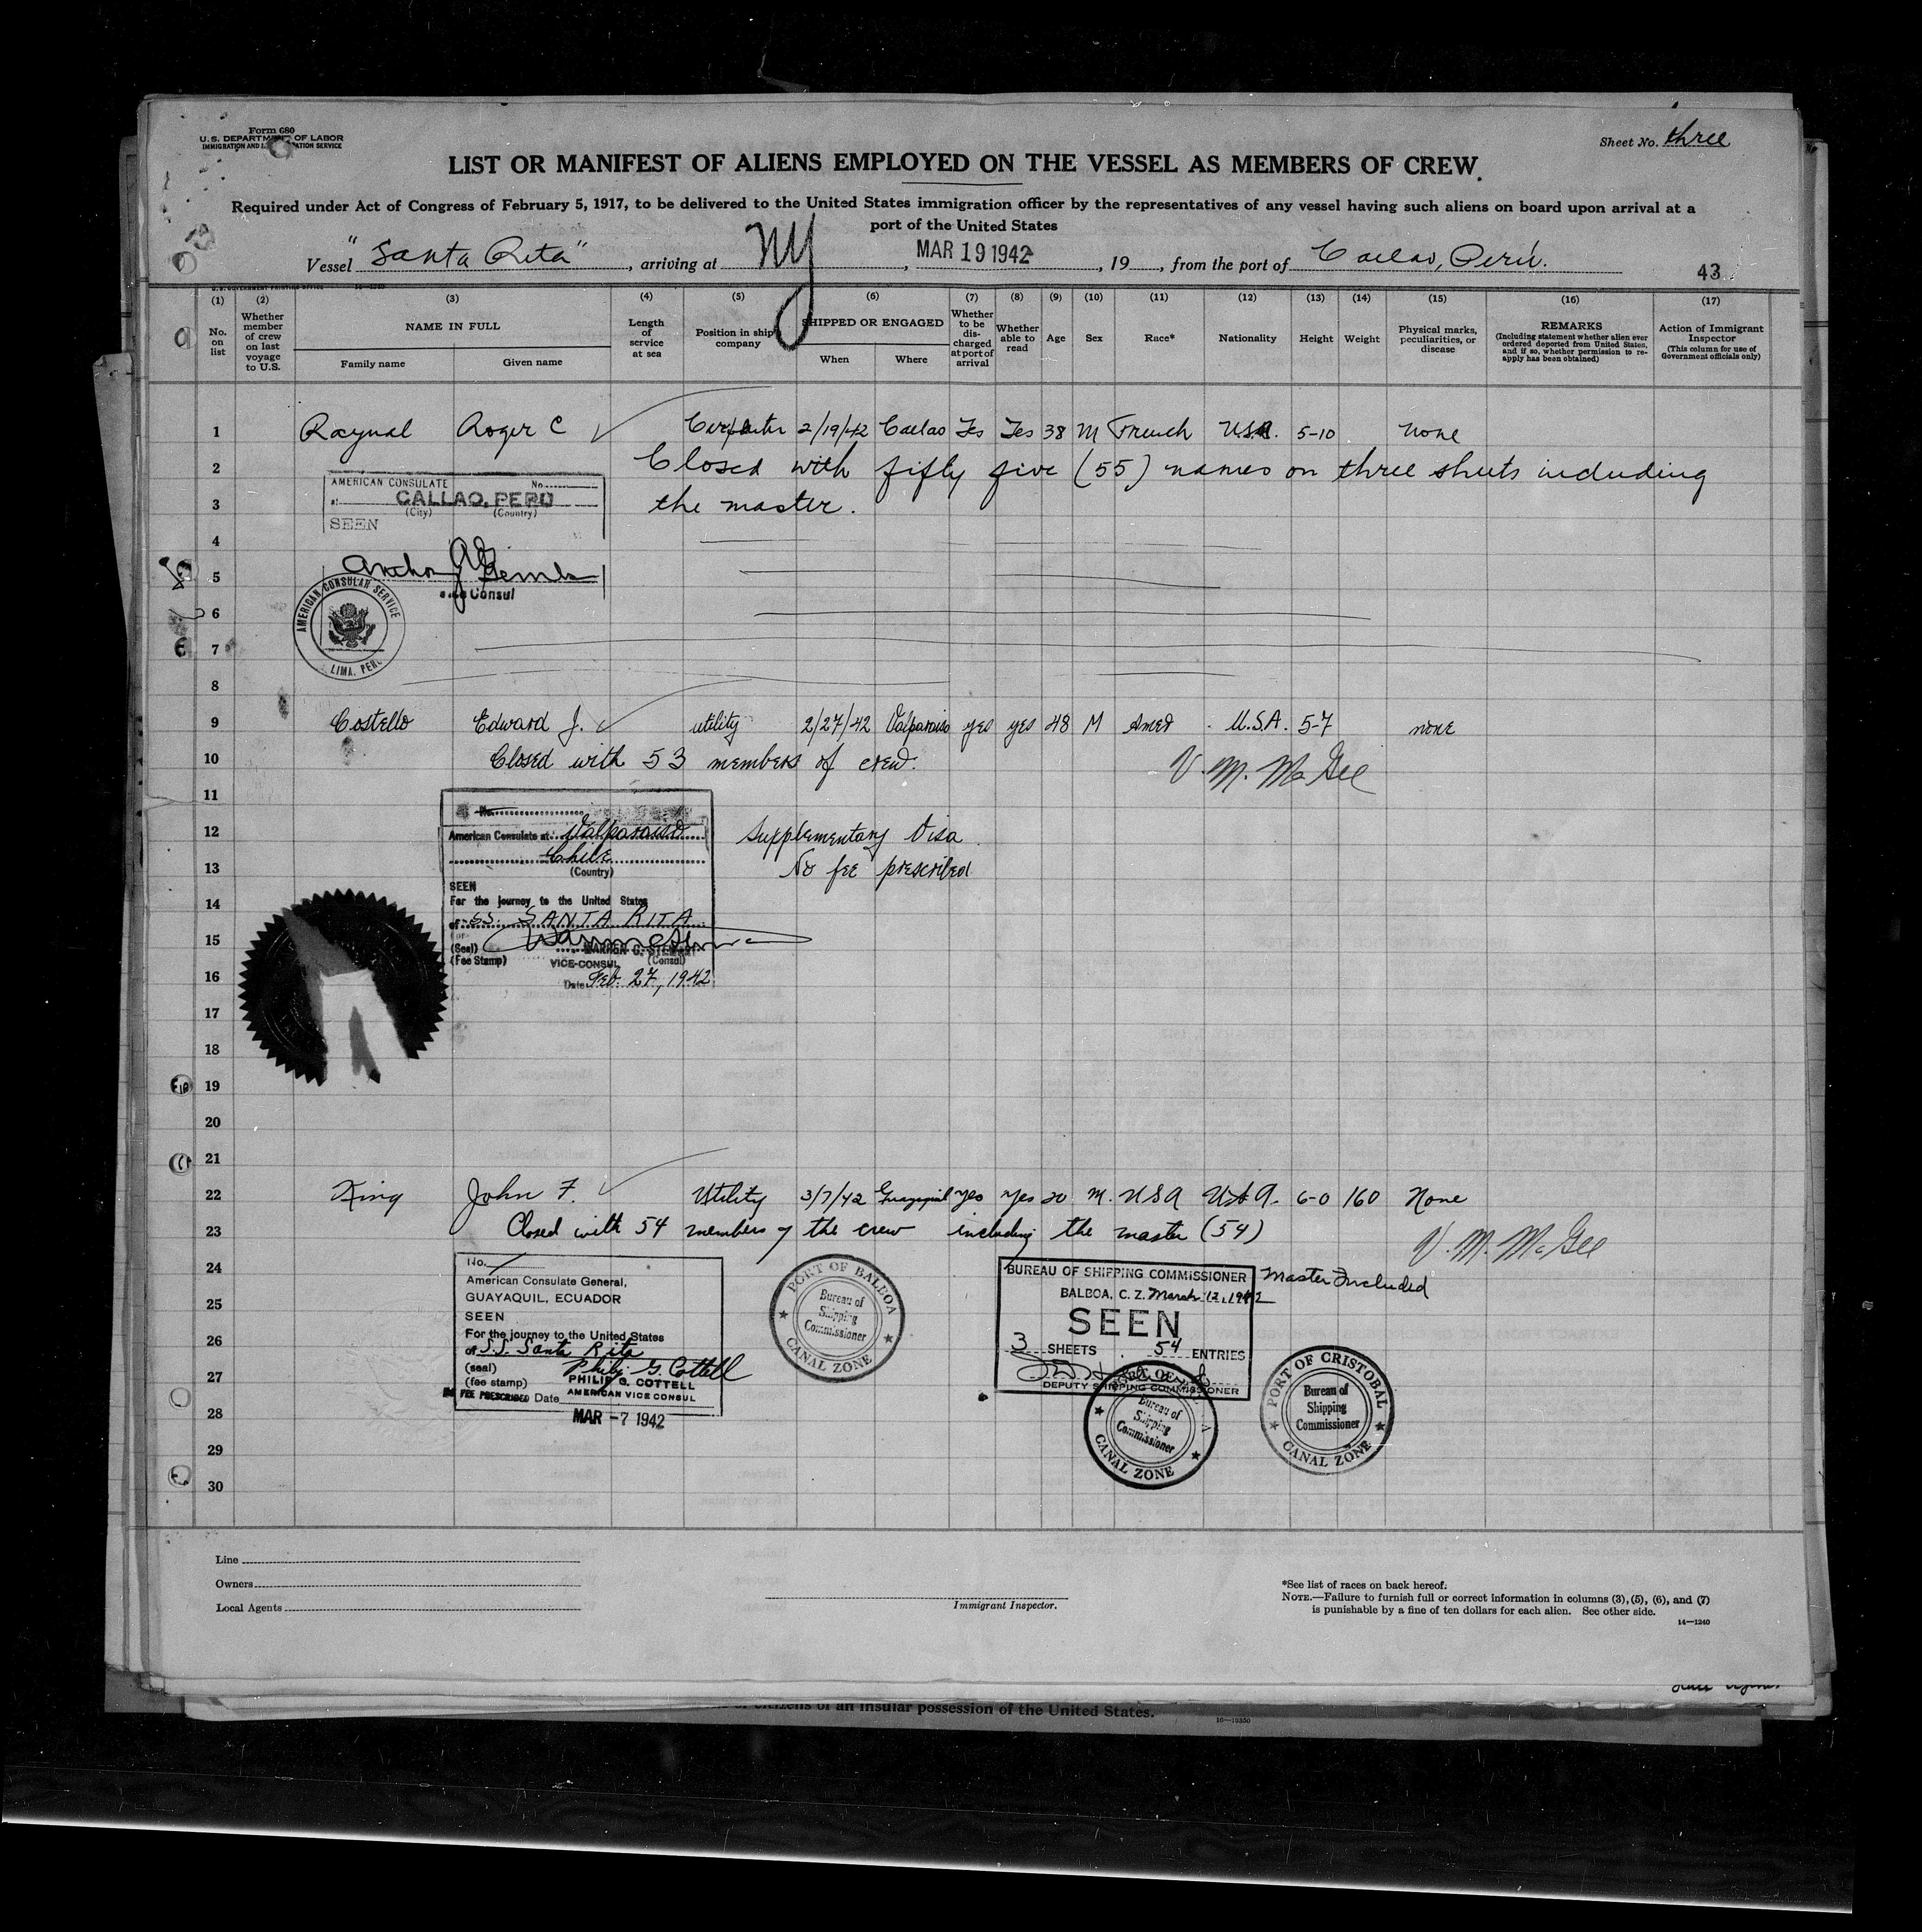 Form 680
U.S. DEPARTMENT OF LABOR
IMMIGRATION AND NATURALIZATION SERVICE
Sheet No. three
LIST OR MANIFEST OF ALIENS EMPLOYED ON THE VESSEL AS MEMBERS OF CREW
Required under Act of Congress of February 5, 1917, to be delivered to the United States immigration officer by the representatives of any vessel having such aliens on board upon arrival at a
port of the United States
Vessel "Santa Rita", arriving at NY, MAR 19 1942, 19, from the port of Callao, Perú.
43
(1) (2) (3) (4) (5) (6) (7) (8) (9) (10) (11) (12) (13) (14) (15) (16) (17)
No. on list
Whether member of crew on last voyage to U.S.
NAME IN FULL
Family name
Given name
Length of service at sea
Position in ship's company
SHIPPED OR ENGAGED
When
Where
Whether to be discharged at port of arrival
Whether able to read
Age
Sex
Race*
Nationality
Height
Weight
Physical marks, peculiarities, or disease
REMARKS
(Including statement whether alien ever ordered deported from United States, and if so, whether permission to reapply has been obtained)
Action of Immigrant Inspector
(This column for use of Government officials only)
1 Raynal Roger C Carpenter 2/19/42 Callao Yes Yes 38 M French U.S.A. 5-10 None
2 Closed with fifty five (55) names on three sheets including
3 the master.
AMERICAN CONSULATE No.
at CALLAO, PERU
(City) (Country)
SEEN
4
5
Consul
AMERICAN CONSULAR SERVICE
LIMA, PERU
6
7
8
9 Costello Edward J. utility 2/27/42 Valparaiso yes yes 48 M Amer U.S.A. 5-7 none
10 Closed with 53 members of crew.
V. M. McGee
11
No.
12 American Consulate at Valparaiso
Supplementary Visa
Chile
13 (Country)
No fee prescribed
SEEN
14 For the journey to the United States
of SS. SANTA RITA
15 (Seal)
(Fee Stamp) VICE-CONSUL (Consul)
16 Date Feb. 27, 1942
17
18
19
20
21
22 King John F. Utility 3/7/42 Guayaquil yes Yes 20 M. USA USA. 6-0 160 None
23 Closed with 54 members of the crew including the master (54)
V. M. McGee
24
No.
American Consulate General,
GUAYAQUIL, ECUADOR
SEEN
For the journey to the United States
of S.S. Santa Rita
(seal) Philip G. Cottell
(fee stamp) PHILIP G. COTTELL
NO FEE PRESCRIBED Date AMERICAN VICE CONSUL
MAR -7 1942
PORT OF BALBOA
Bureau of Shipping Commissioner
CANAL ZONE
BUREAU OF SHIPPING COMMISSIONER
Master Included
BALBOA, C. Z. March 12, 1942
SEEN
3 SHEETS 54 ENTRIES
DEPUTY SHIPPING COMMISSIONER
PORT OF
Bureau of Shipping Commissioner
CANAL ZONE
PORT OF CRISTOBAL
Bureau of Shipping Commissioner
CANAL ZONE
25
26
27
28
29
30
Line
Owners
Local Agents
Immigrant Inspector.
*See list of races on back hereof.
NOTE.—Failure to furnish full or correct information in columns (3), (5), (6), and (7)
is punishable by a fine of ten dollars for each alien. See other side.
14—1240
citizens of an insular possession of the United States.